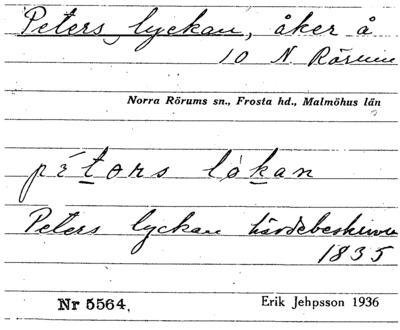 Peters lyckan, åker å
10 N. Rörum
Norra Rörums sn., Frosta hd., Malmöhus län
pétors lókan
Peters lyckan hävdebeskrivn
1835
Nr 5564.
Erik Jehpsson 1936